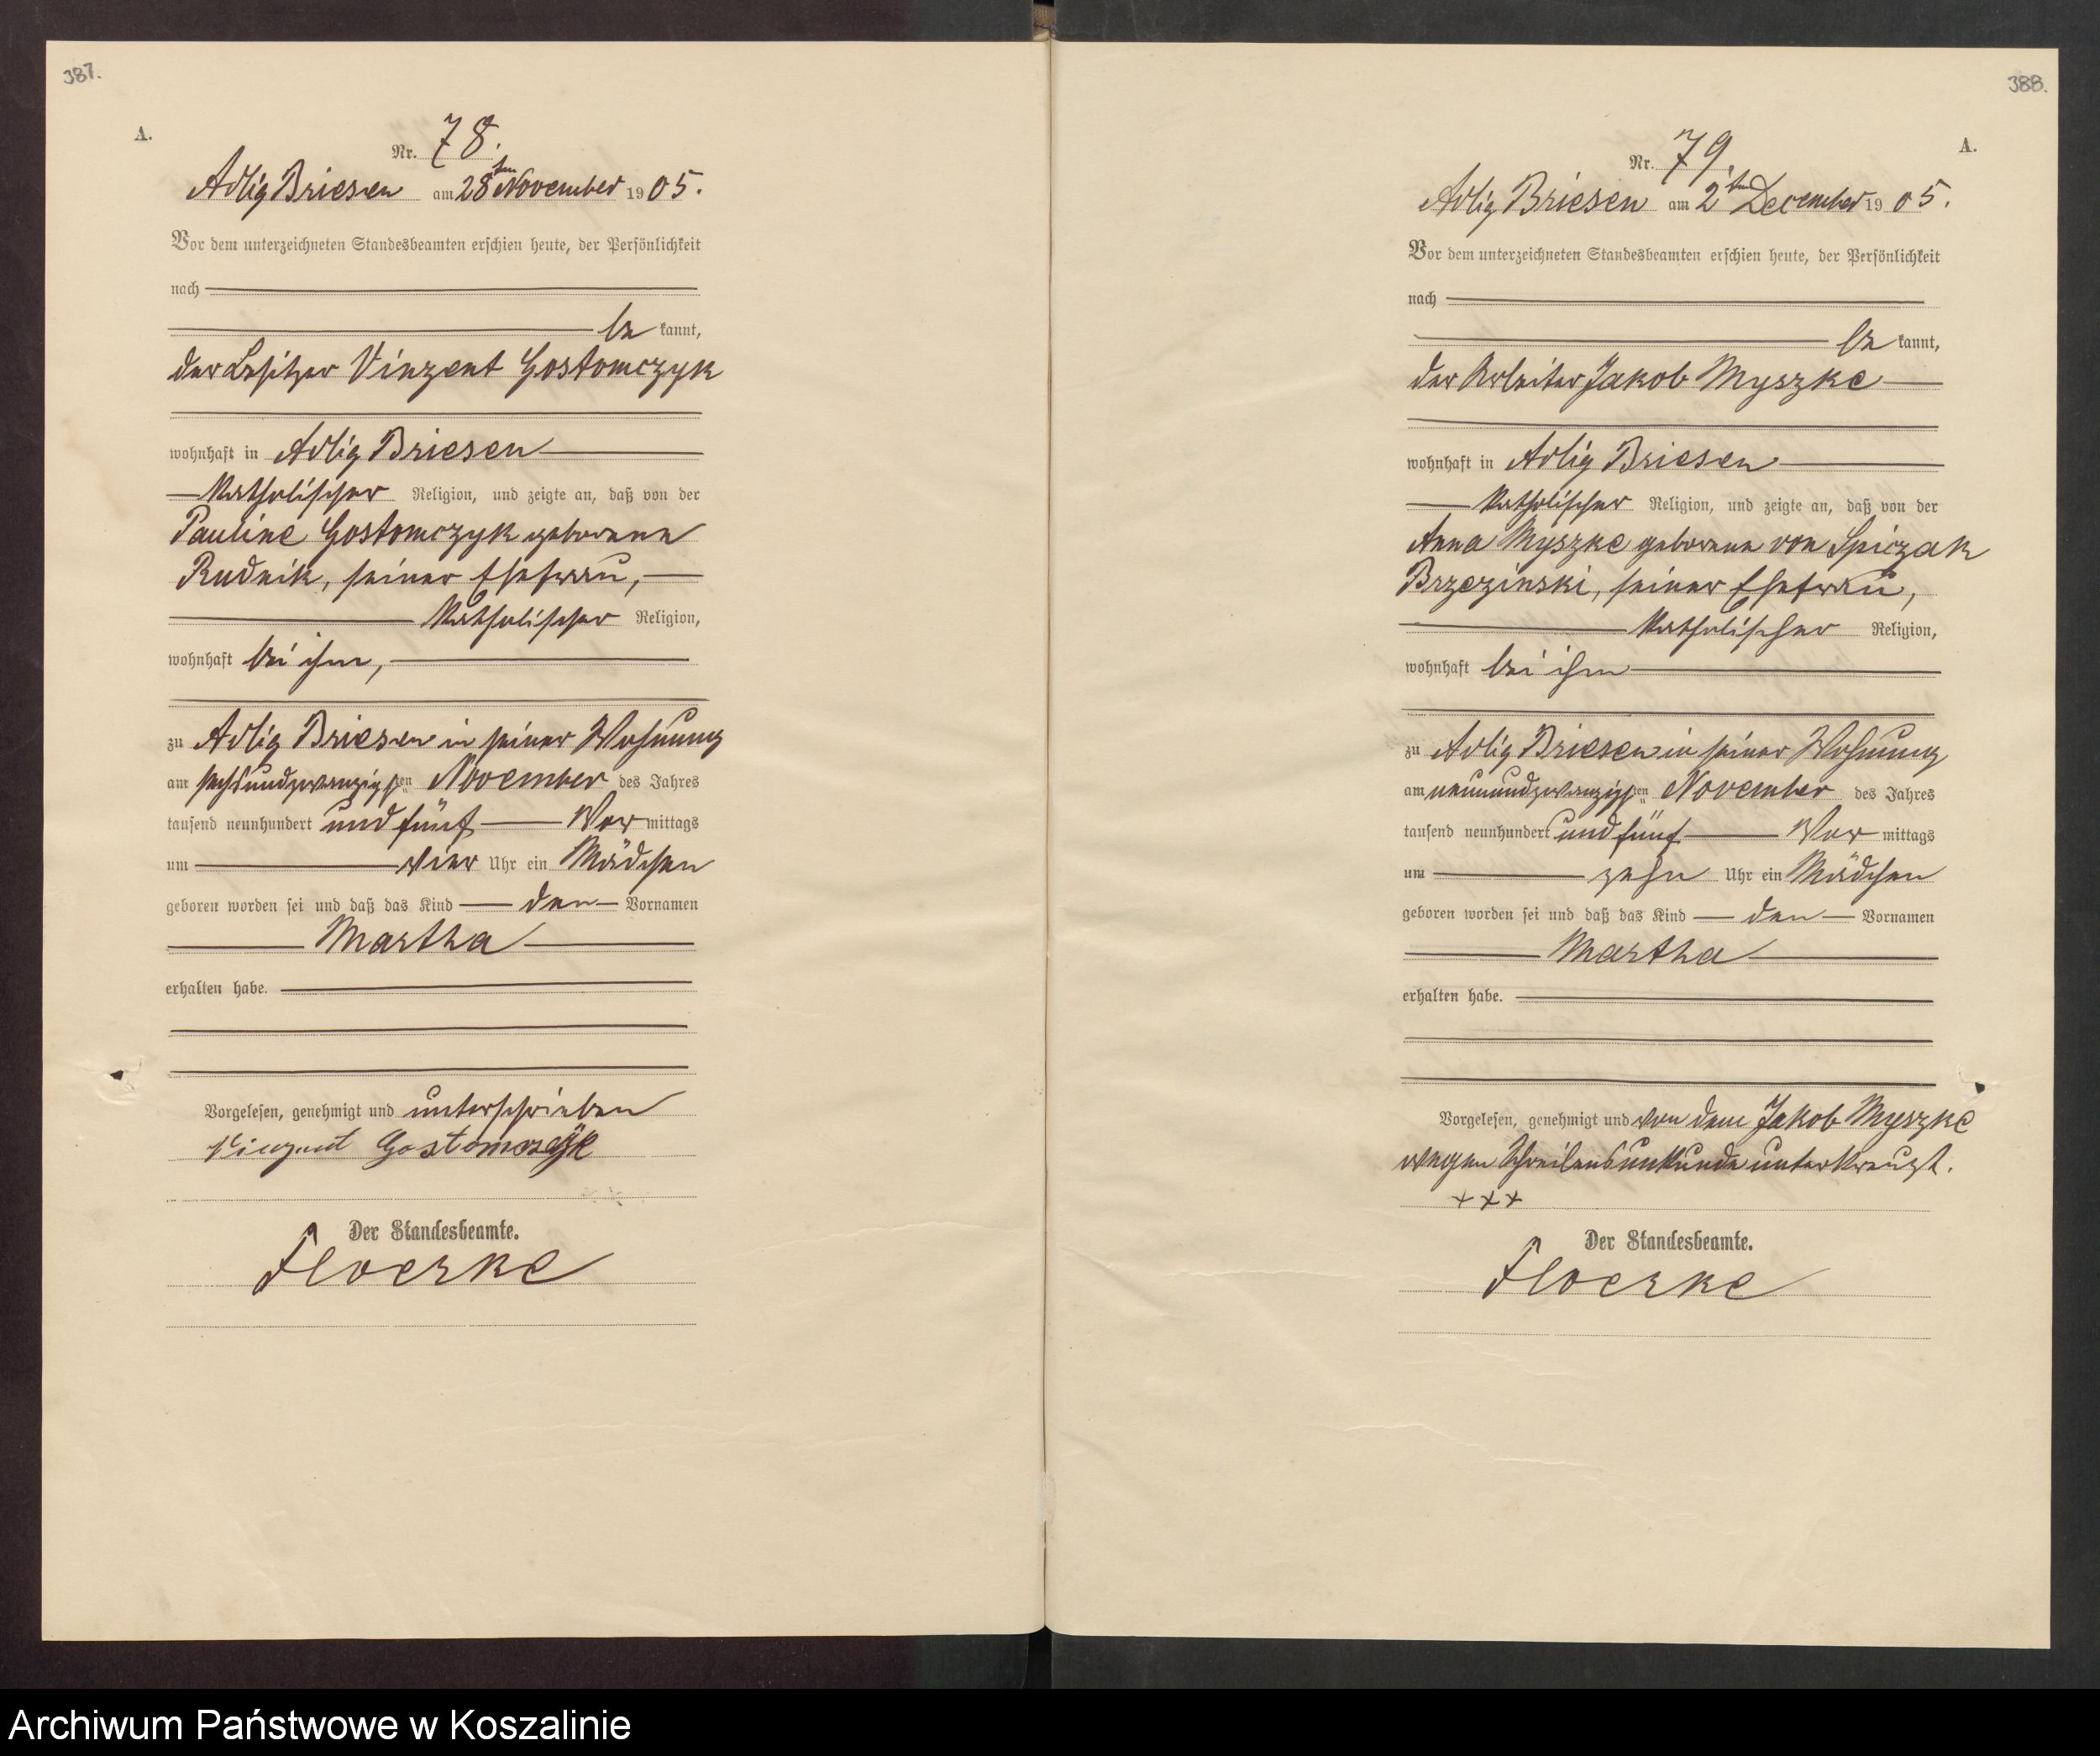 387.
A.
Nr. 78.
Adlig Briesen am 28ten November 1905.
Vor dem unterzeichneten Standesbeamten erschien heute, der Persönlichkeit
nach
be kannt,
der Besitzer Vinzent Gostomczyk
wohnhaft in Adlig Briesen
katholischer Religion, und zeigte an, daß von der
Pauline Gostomczyk geborene
Rudnik, seiner Ehefrau,
katholischer Religion,
wohnhaft bei ihm,
zu Adlig Briesen in seiner Wohnung
am sechsundzwanzigsten November des Jahres
tausend neunhundert und fünf Vor mittags
um vier Uhr ein Mädchen
geboren worden sei und daß das Kind den Vornamen
Martha
erhalten habe.
Vorgelesen, genehmigt und unterschrieben
Vinzent Gostomczyk
Der Standesbeamte.
Floerke
388.
A.
Nr. 79.
Adlig Briesen am 2ten December 1905.
Vor dem unterzeichneten Standesbeamten erschien heute, der Persönlichkeit
nach
be kannt,
der Arbeiter Jakob Myszke
wohnhaft in Adlig Briesen
katholischer Religion, und zeigte an, daß von der
Anna Myszke geborene von Spiczak
Brzezinski, seiner Ehefrau,
katholischer Religion,
wohnhaft bei ihm
zu Adlig Briesen in seiner Wohnung
am neunundzwanzigsten November des Jahres
tausend neunhundert und fünf Vor mittags
um zehn Uhr ein Mädchen
geboren worden sei und daß das Kind den Vornamen
Martha
erhalten habe.
Vorgelesen, genehmigt und von dem Jakob Myszke
wegen Schreibensunkunde unterkreuzt.
+++
Der Standesbeamte.
Floerke
Archiwum Państwowe w Koszalinie